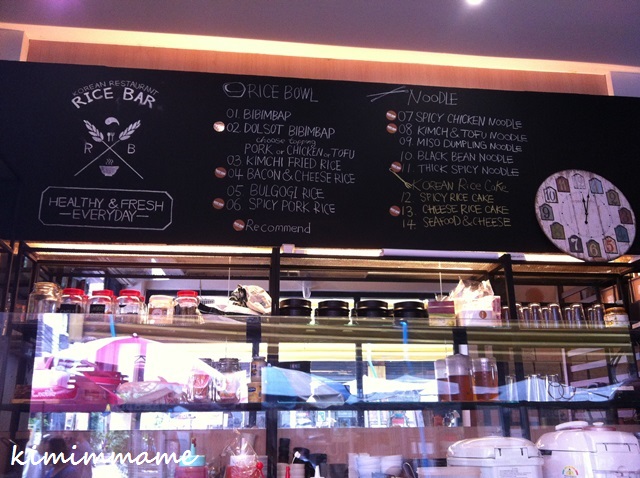 KOREAN RESTAURANT
RICE BAR
R B
HEALTHY & FRESH
—EVERYDAY—
RICE BOWL
01. BIBIMBAP
02. DOLSOT BIBIMBAP
choose topping
PORK or CHICKEN or TOFU
03 KIMCHI FRIED RICE
04 BACON & CHEESE RICE
05 BULGOGI RICE
06 SPICY PORK RICE
Recommend
NOODLE
07 SPICY CHICKEN NOODLE
08 KIMCH & TOFU NOODLE
09 MISO DUMPLING NOODLE
10 BLACK BEAN NOODLE
11 THICK SPICY NOODLE
KOREAN RICE CAKE
12 SPICY RICE CAKE
13 CHEESE RICE CAKE
14 SEAFOOD & CHEESE
kimimmame